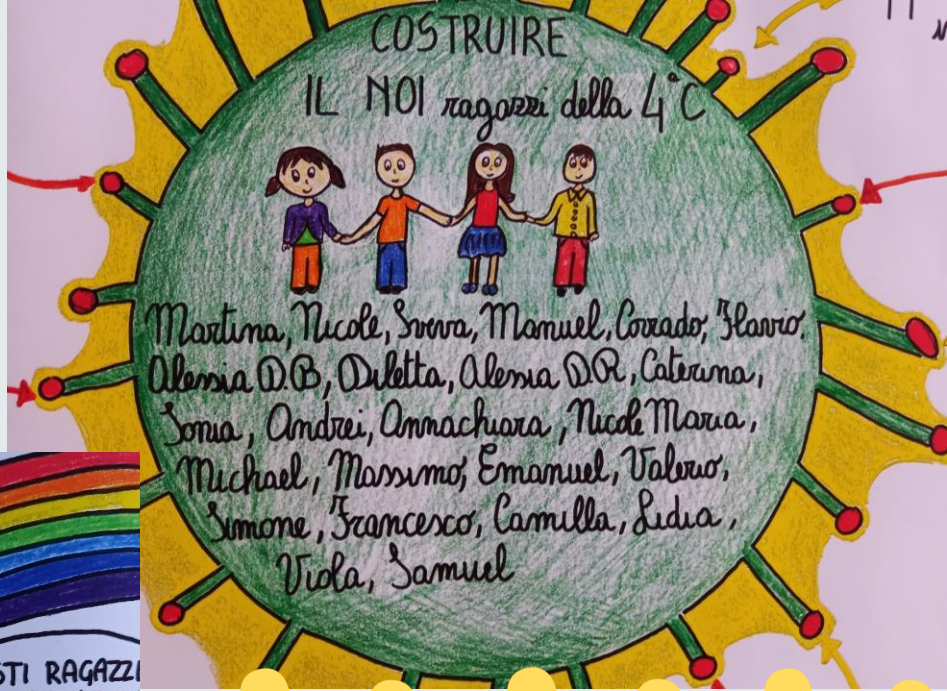 COSTRUIRE
IL NOI ragazzi della 4°C
Martina, Nicole, Sveva, Manuel, Corrado, Flavio.
Alessia D.B, Diletta, Alessia D.R, Caterina,
Sonia, Andrei, Annachiara, Nicole Maria,
Michael, Massimo, Emanuel, Valerio,
Simone, Francesco, Camilla, Lidia,
Viola, Samuel
STI RAGAZZI